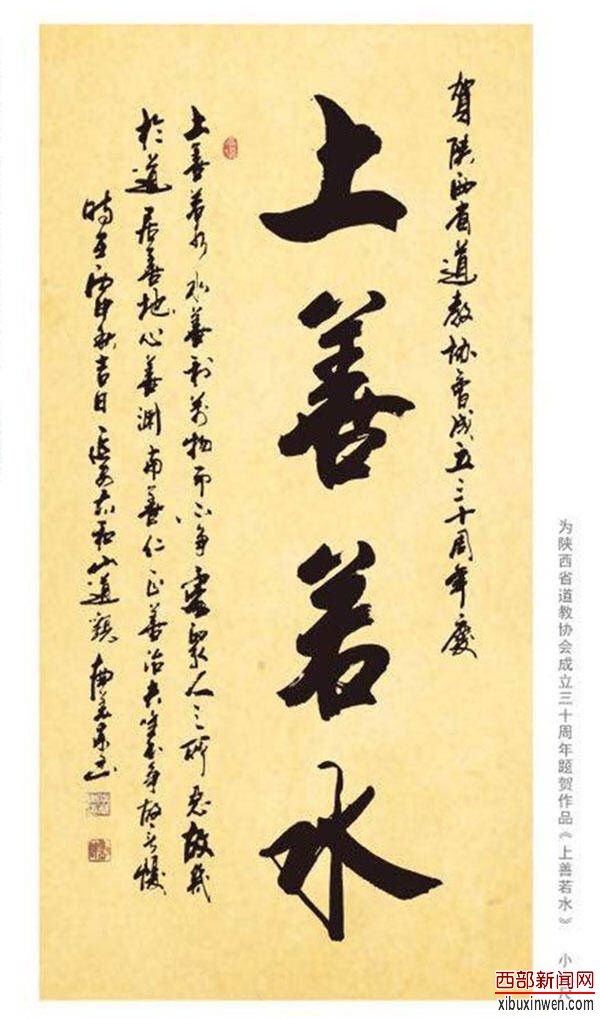 贺陕西省道教协会成立三十周年庆
上善若水
上善若水水善利万物而不争处众人之所恶故几
于道居善地心善渊与善仁正善治夫唯不争故无
时在丙申秋吉日
为陕西省道教协会成立三十周年题贺作品《上善若水》 小
西部新闻网
xibuxinwen.com